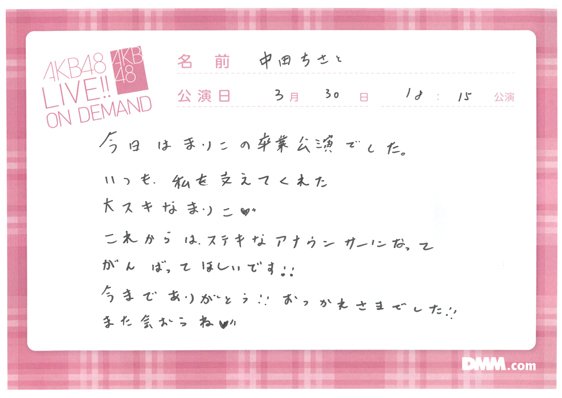 AKB48
LIVE!!
ON DEMAND
AKB
48
名前 中田ちさと
公演日 3月30日 18:15公演
今日はまりこの卒業公演でした。
いつも、私を支えてくれた
大スキなまりこ♥♥
これからは、ステキなアナウンサーになって
がんばってほしいです!!
今までありがとう!! おつかれさまでした!!
また会おうね♥♥
DMM.com